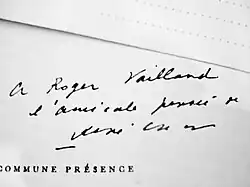 à Roger Vailland
l'amicale pensée de
René Char
COMMUNE PRÉSENCE